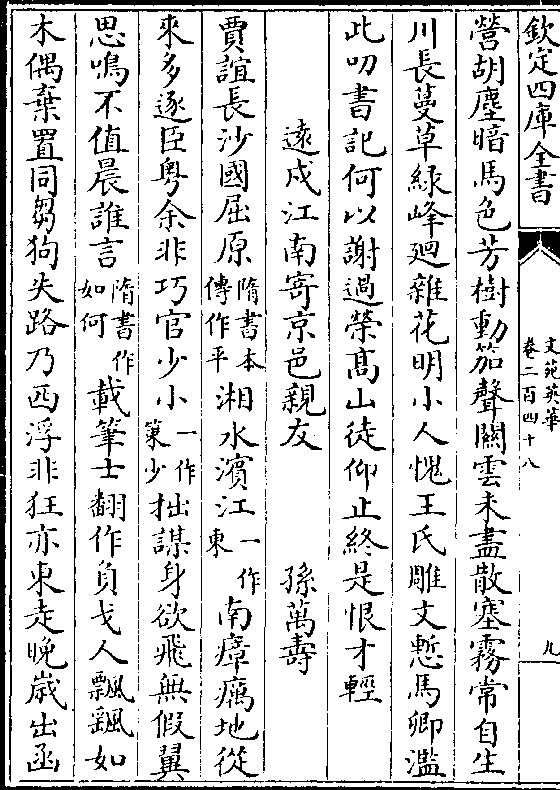 欽定四庫全書
文苑英華
卷二百四十八
九
營胡塵暗馬色芳樹動笳聲關雲未盡散塞霧常自生
川長蔓草綠峰廻雜花明小人愧王氏雕文慙馬卿濫
此叨書記何以謝過榮髙山徒仰止終是恨才輕
逺戍江南寄京邑親友 孫萬壽
賈誼長沙國屈原隋書本傳作平湘水濱江一作東南瘴癘地從
來多逐臣粤余非巧官少小一作第少拙謀身欲飛無假翼
思鳴不值晨誰言隋書作如何載筆士翻作負戈人飄颻如
木偶棄置同芻狗失路乃西浮非狂亦東走晚嵗出函